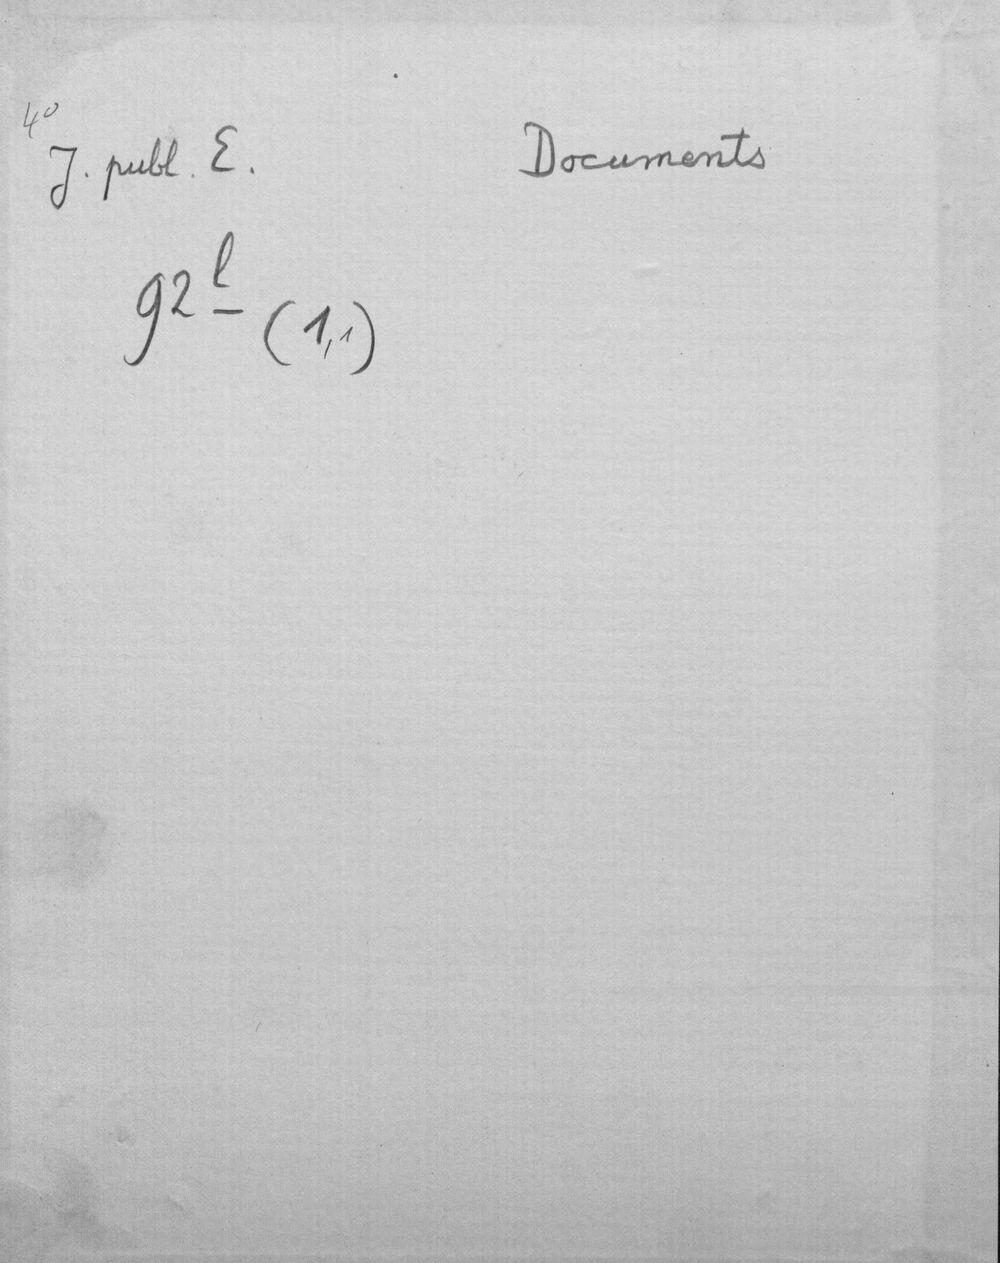 4º
J. publ. E. Documents
92ˡ (1,1)